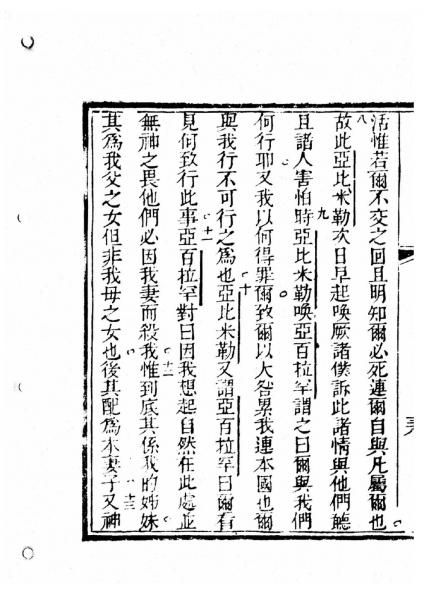 活惟若爾不交之回且明知爾必死連爾自與凡屬爾也
八故此亞比米勒次日早起喚厥諸僕訴此諸情與他們聽
且諸人害怕九時亞比米勒喚亞百拉罕謂之曰爾與我們
何行耶又我以何得罪爾致爾以大咎累我連本國也爾
與我行不可行之爲也十亞比米勒又謂亞百拉罕曰爾有
見何致行此事十一亞百拉罕對曰因我想起自然在此處並
無神之畏他們必因我妻而殺我十二惟到底其係我的姊妹
其爲我父之女但非我母之女也後其配爲本妻子十三又神